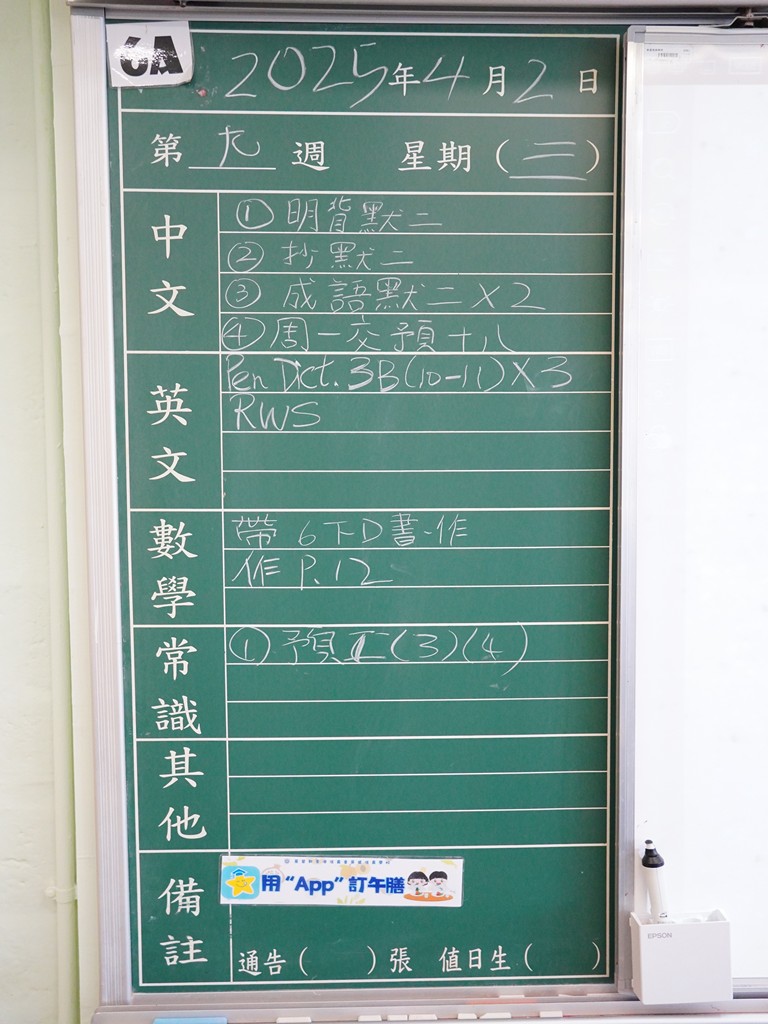 6A
2025年4月2日
第九週 星期(三)
中文
①明背默二
②抄默二
③成語默二X2
④周一交預十八
英文
Pen Dict. 3B(10-11)X3
RWS
數學
帶 6下D書、作
作 P.12
常識
①預工(3)(4)
其他
備註
用“App”訂午膳
通告( )張 值日生( )
EPSON